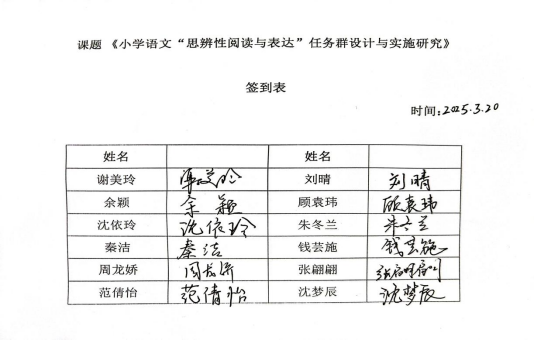 课题《小学语文“思辨性阅读与表达”任务群设计与实施研究》
签到表
时间：2025.3.20
姓名 姓名
谢美玲 刘晴 刘晴
余颖 余颖 顾袁玮 顾袁玮
沈依玲 沈依玲 朱冬兰 朱冬兰
秦洁 秦洁 钱芸施 钱芸施
周龙娇 张翩翩
范倩怡 范倩怡 沈梦辰 沈梦辰